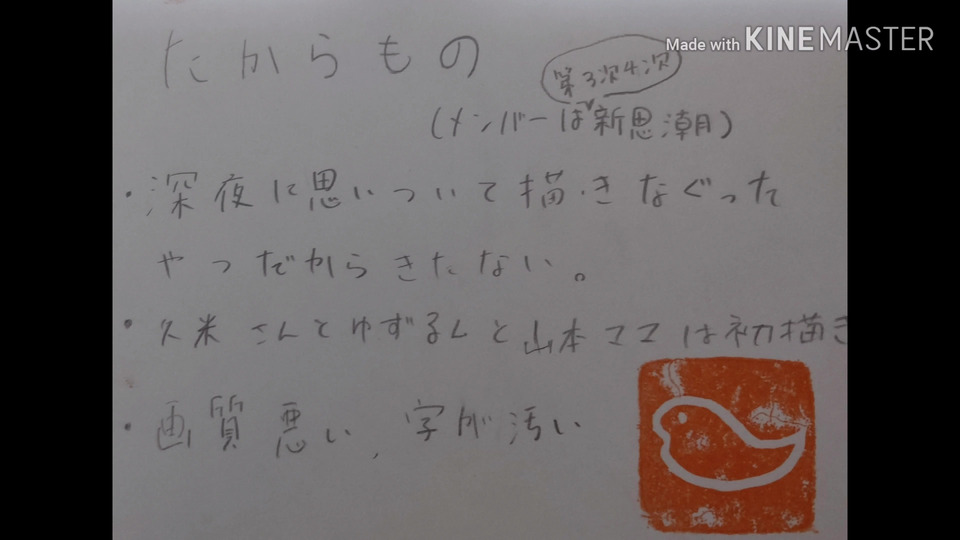 Made with KINEMASTER
たからもの
第3次4次
(メンバーは新思潮)
・深夜に思いついて描きなぐった
やつだからきたない。
・久米さんとゆずるくと山本ママは初描き
・画質悪い、字が汚い